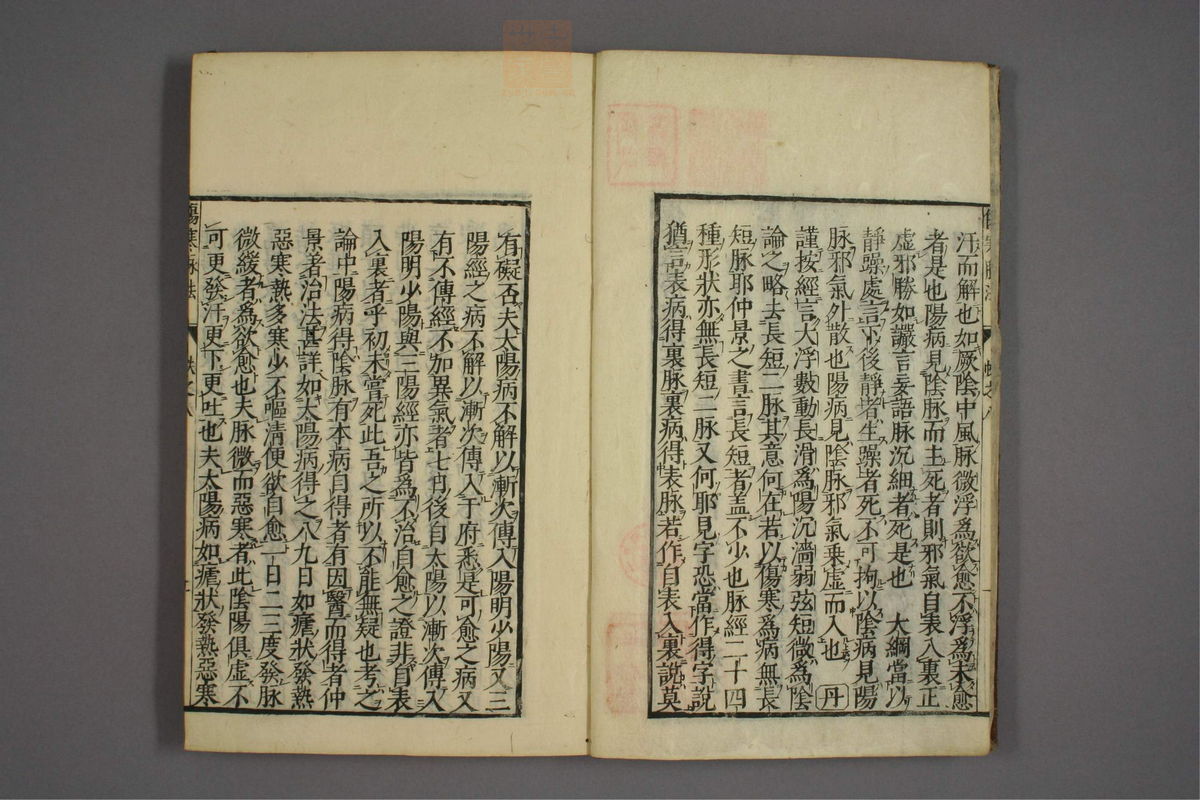 汗而解也如厥陰中風脉微浮爲欲愈不浮爲未愈
者是也陽病見陰脉而主死者則邪氣自表入裏正
虛邪勝如讝言妄語脉沉細者死是也 大綱當以
靜躁處言後靜者生躁者死不可拘以陰病見陽
脉邪氣外散也陽病見陰脉邪氣乗虛而入也 丹
謹按經言大浮數動長滑爲陽沉濇弱弦短微爲陰
論之略去長短二脉其意何在若以傷寒爲病無長
短脉耶仲景之書言長短者盖不少也脉經二十四
種形狀亦無長短二脉又何耶見字恐當作得字說
猶言表病得裏脉裏病得表脉若作自表入裏說莫
有礙否夫太陽病不解以漸次傳入陽明少陽又三
陽經之病不解以漸次傳入于府悉是可愈之病又
有不傳經不加異氣者七日後自太陽以漸次傳入
陽明少陽與三陽經亦皆爲不治自愈之證非自表
入裏者乎初未嘗死此吾之所以不能無疑也考之
論中陽病得陰脉有本病自得者有因醫而得者仲
景者治法甚詳如太陽病得之八九日如瘧狀發熱
惡寒熱多寒少不嘔清便欲自愈一日二三度發脉
微緩者為欲愈也夫脉微而惡寒者此陰陽俱虛不
可更發汗更下更吐也夫太陽病如瘧狀發熱惡寒
傷寒脉法